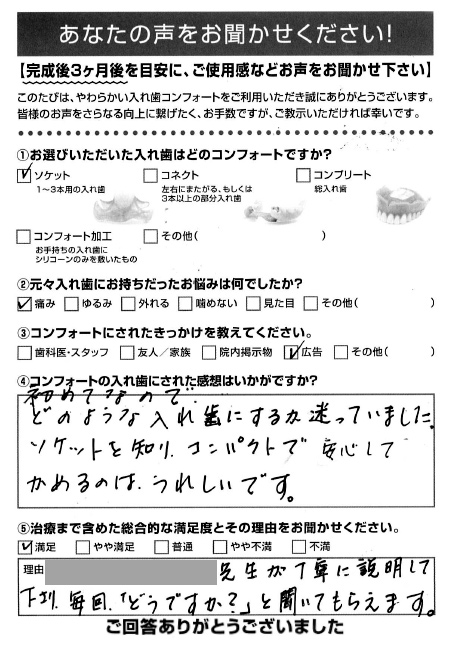 あなたの声をお聞かせください!
【完成後3ヶ月後を目安に、ご使用感などお声をお聞かせ下さい】
このたびは、やわらかい入れ歯コンフォートをご利用いただき誠にありがとうございます。
皆様のお声をさらなる向上に繋げたく、お手数ですが、ご教示いただければ幸いです。
①お選びいただいた入れ歯はどのコンフォートですか?
☑ソケット □コネクト □コンプリート
1〜3本用の入れ歯 左右にまたがる、もしくは 総入れ歯
3本以上の部分入れ歯
□コンフォート加工 □その他( )
お手持ちの入れ歯に
シリコーンのみを敷いたもの
②元々入れ歯にお持ちだったお悩みは何でしたか?
☑痛み □ゆるみ □外れる □噛めない □見た目 □その他( )
③コンフォートにされたきっかけを教えてください。
□歯科医・スタッフ □友人/家族 □院内掲示物 ☑広告 □その他( )
④コンフォートの入れ歯にされた感想はいかがですか?
初めてなので
どのような入れ歯にするか迷っていました。
ソケットを知り、コンパクトで 安心して
かめるのは、うれしいです。
⑤治療まで含めた総合的な満足度とその理由をお聞かせください。
☑満足 □やや満足 □普通 □やや不満 □不満
理由 先生が丁寧に説明して
下さり、毎回、「どうですか?」と聞いてもらえます。
ご回答ありがとうございました